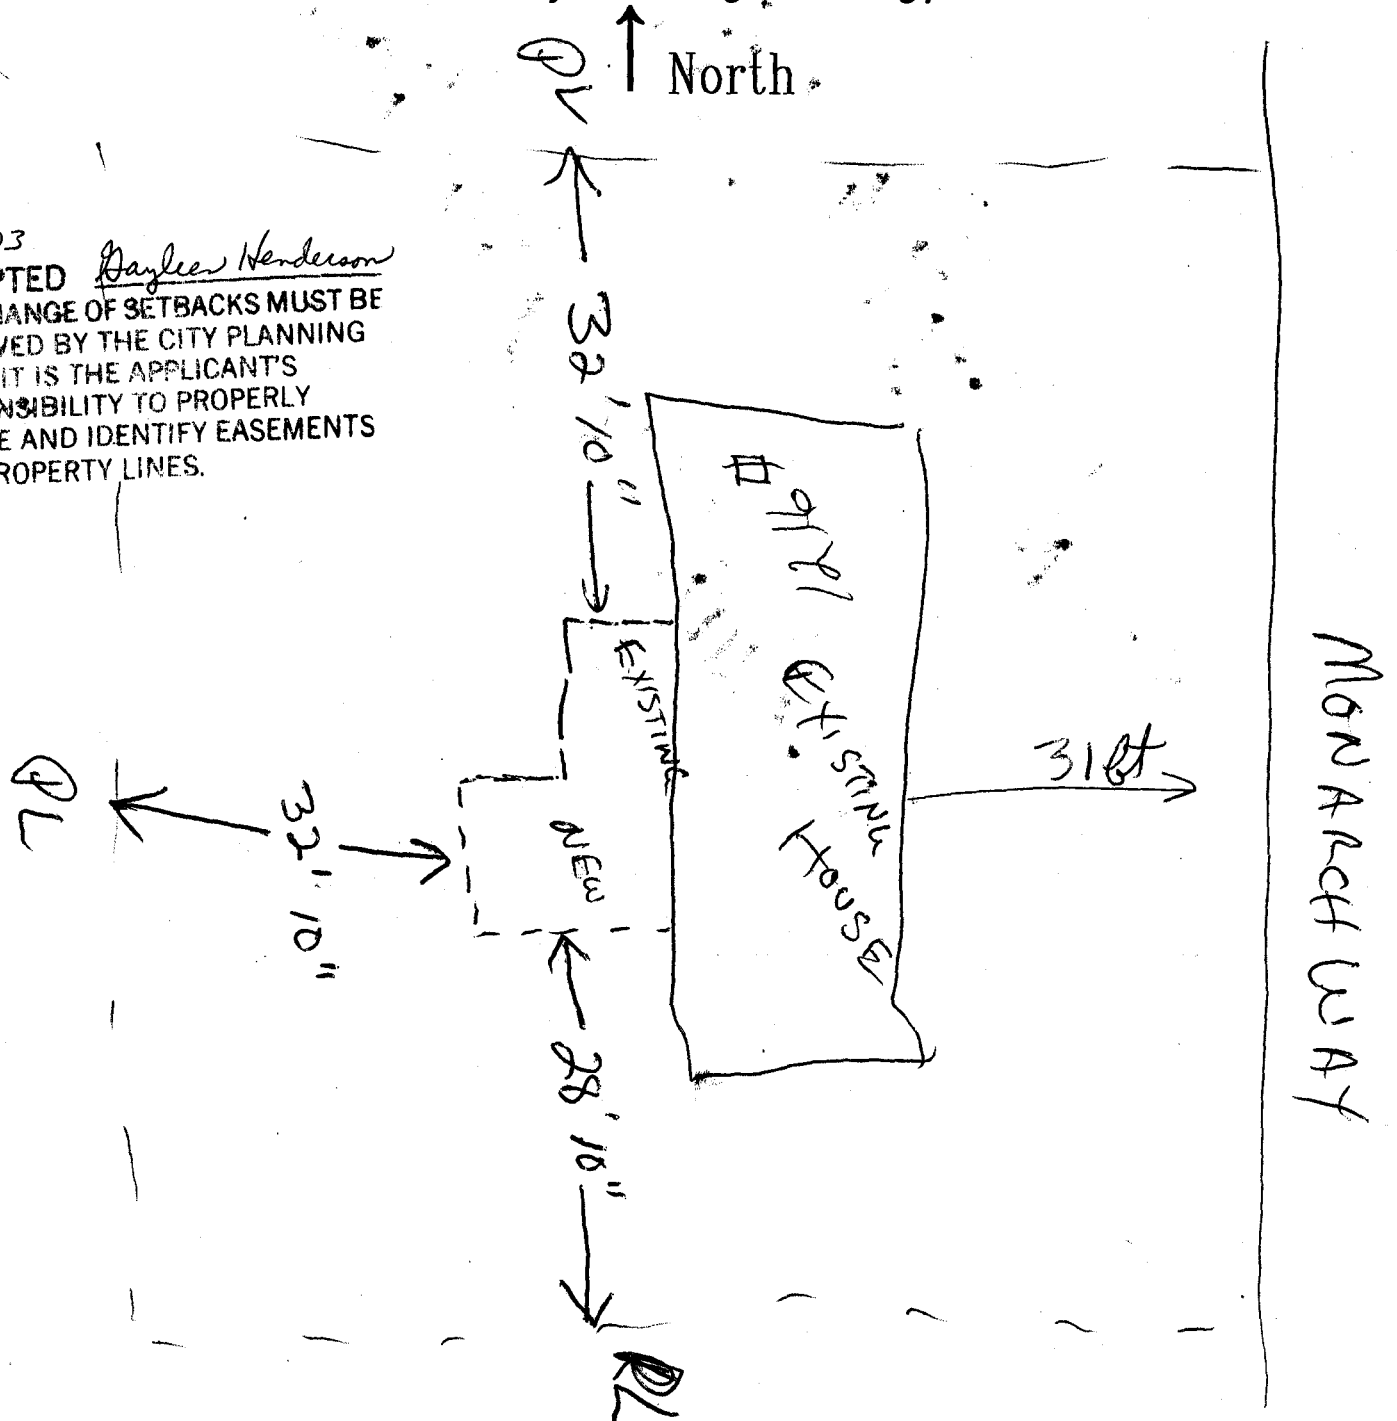 North
PL
03
PTED Gayleen Henderson
HANGE OF SETBACKS MUST BE
VED BY THE CITY PLANNING
IT IS THE APPLICANT'S
NSIBILITY TO PROPERLY
E AND IDENTIFY EASEMENTS
ROPERTY LINES.
32' 10"
EXISTING
EXISTING HOUSE
31 ft
MONARCH WAY
PL
32' 10"
NEW
28' 10"
PL